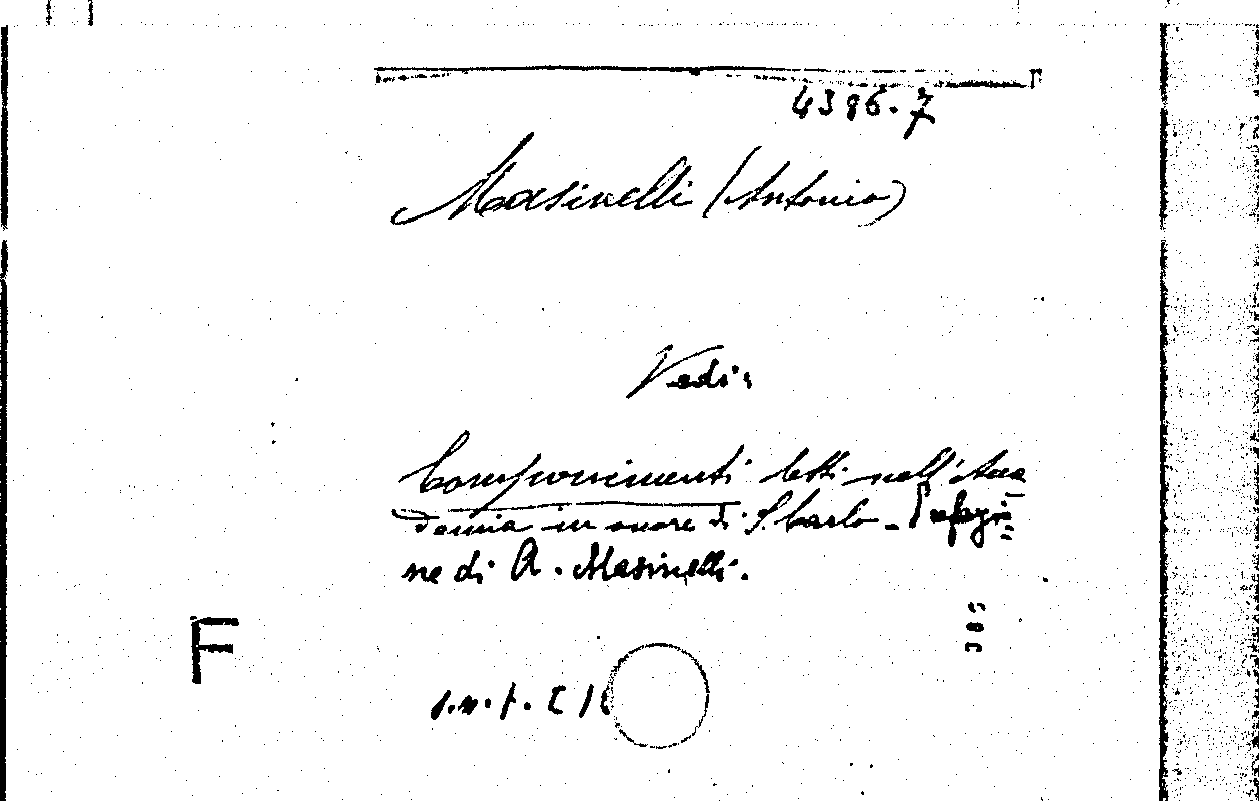 4396.7
Masinelli (Antonio)
Vedi:
Componimenti letti nell'Acca
demia in onore di S. Carlo - Prefazio=
ne di A. Masinelli.
F
s.n.t.